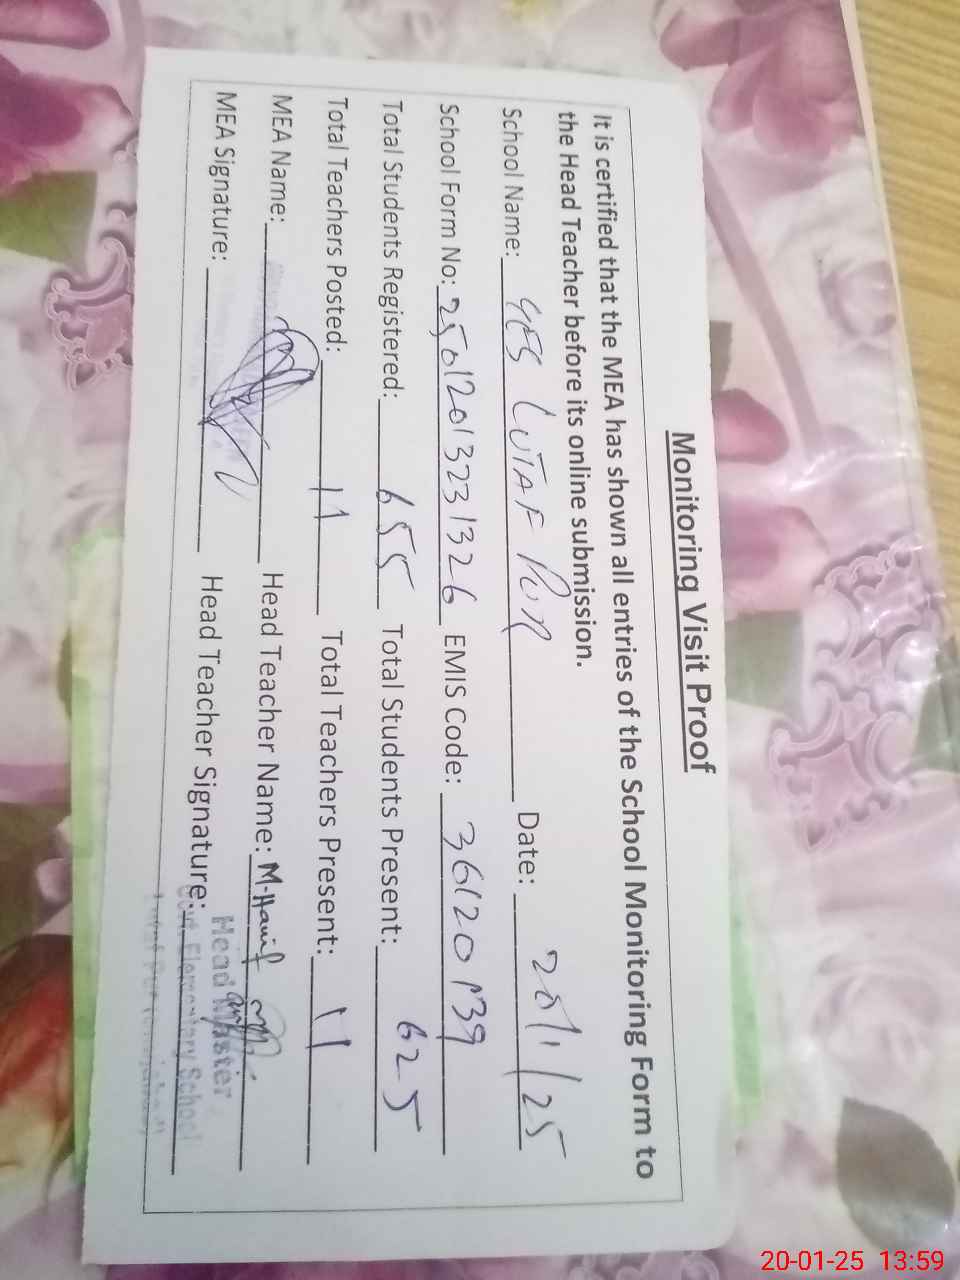 Monitoring Visit Proof
It is certified that the MEA has shown all entries of the School Monitoring Form to
the Head Teacher before its online submission.
School Name: GES LUTAF PUR Date: 20/1/25
School Form No: 250120132331326 EMIS Code: 36120139
Total Students Registered: 655 Total Students Present: 625
Total Teachers Posted: 11 Total Teachers Present: 11
MEA Name: Head Teacher Name: M-Hanif
MEA Signature: Head Teacher Signature:
Head Master
Govt. Elementary School
20-01-25 13:59